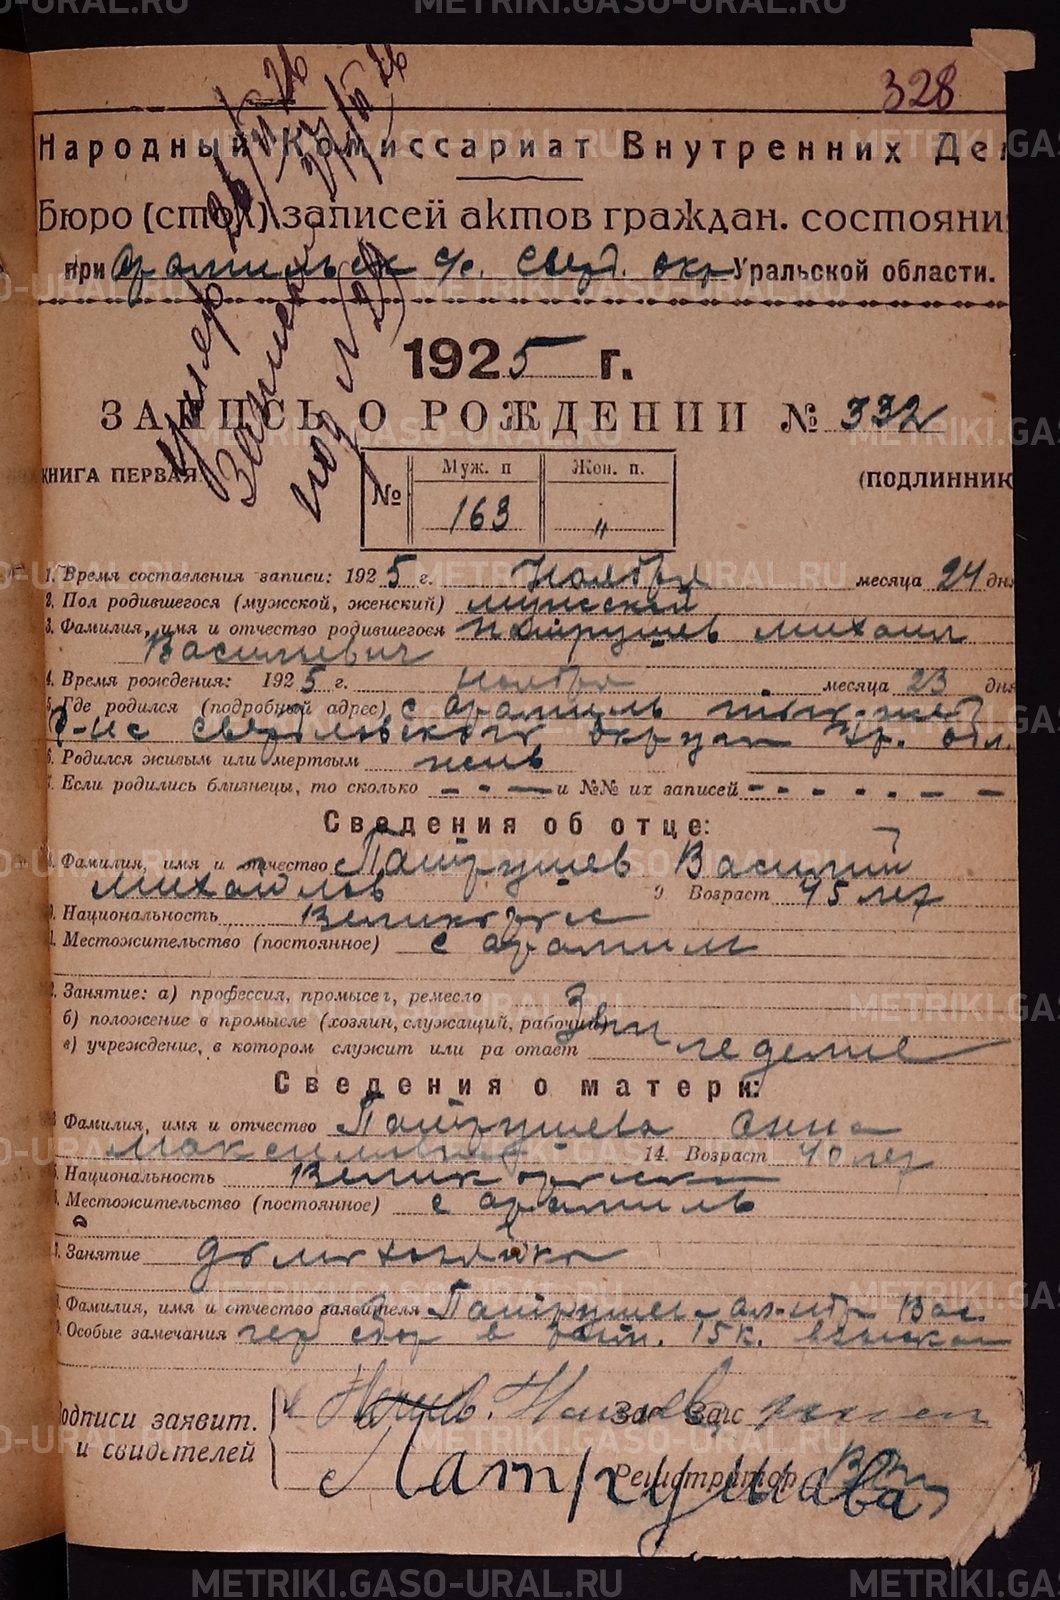 328
Народный Комиссариат Внутренних Дел
Бюро (стол) записей актов граждан. состояния
при Арамильск с/с. Сверд. окр Уральской области.
1925 г.
ЗАПИСЬ О РОЖДЕНИИ № 332
КНИГА ПЕРВАЯ. (ПОДЛИННИК
№ Муж. п Жен. п.
163 „
Умер
1. Время составления записи: 1925 г. Ноября месяца 24 дня
2. Пол родившегося (мужской, женский) мужской
3. Фамилия, имя и отчество родившегося Патрушев Михаил
Васильевич
4. Время рождения: 1925 г. Ноября месяца 23 дня
5. Где родился (подробный адрес) с арамиль
Свердловского округа Ур. обл.
6. Родился живым или мертвым жив
7. Если родились близнецы, то сколько - - - и №№ их записей - - - - - -
Сведения об отце:
8. Фамилия, имя и отчество Патрушев Василий
Михайлов 9 Возраст 45 лет
0. Национальность Великорус
1. Местожительство (постоянное) с арамиль
2. Занятие: а) профессия, промысел, ремесло
б) положение в промысле (хозяин, служащий, рабочий)
в) учреждение, в котором служит или работает
Земледелие
Сведения о матери:
3 Фамилия, имя и отчество Патрушева Анна
Максимовна 14. Возраст 40 лет
5. Национальность Великорусская
6. Местожительство (постоянное) с арамиль
Занятие домохозяйка
Фамилия, имя и отчество заявителя Патрушева Вас.
9. Особые замечания герб сбор в 15 к. взыскан
Подписи заявит.
и свидетелей
Зав. Загс
Регистратор
Патрушева
METRIKI.GASO-URAL.RU